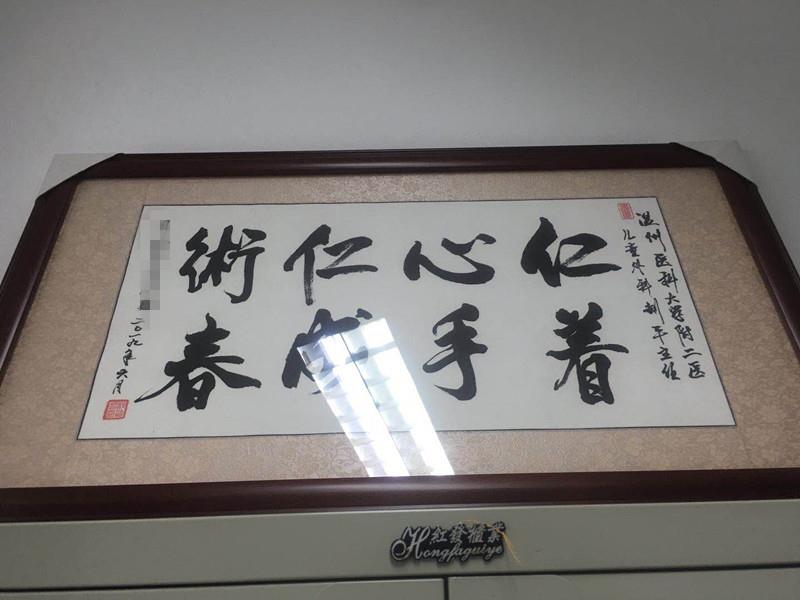 温州医科大学附二医
儿童外科 主任
仁心仁術
着手成春
二〇一九年六月
紅發櫃業
Hongfaguiye